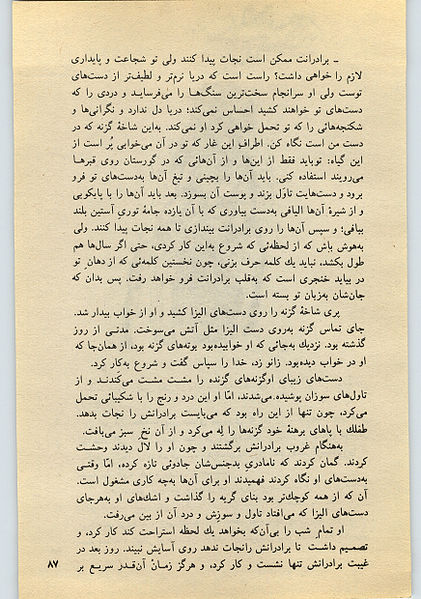 ـ برادرانت ممکن است نجات پیدا کنند ولی تو شجاعت و پایداری
لازم را خواهی داشت؟ راست است که دریا نرم‌تر و لطیف‌تر از دست‌های
توست ولی او سرانجام سخت‌ترین سنگ‌ها را می‌فرساید و دردی را که
دست‌های تو خواهند کشید احساس نمی‌کند؛ دریا دل ندارد و نگرانی‌ها و
شکنجه‌هائی را که تو تحمل خواهی کرد او نمی‌کند. به‌این شاخهٔ گزنه که در
دست من است نگاه کن. اطراف این غار که تو در آن می‌خوابی پُر است از
این گیاه: تو باید فقط از این‌ها و از آن‌هائی که در گورستان روی قبرها
می‌رویند استفاده کنی. باید آن‌ها را بچینی و تیغ آن‌ها به‌دست‌های تو فرو
برود و دست‌هایت تاول بزند و پوست آن بسوزد. بعد باید آن‌ها را با پایکوبی
و از شیرهٔ آن‌ها الیافی به‌دست بیاوری که با آن یازده جامهٔ توری آستین بلند
ببافی؛ و سپس آن‌ها را روی برادرانت بیندازی تا همه نجات پیدا کنند. ولی
به‌هوش باش که از لحظه‌ئی که شروع به‌این کار کردی، حتی اگر سال‌ها هم
طول بکشد، نباید یك کلمه حرف بزنی، چون نخستین کلمه‌ئی که از دهان تو
در بیاید خنجری است که به‌قلب برادرانت فرو خواهد رفت. پس بدان که
جان‌شان به‌زبان تو بسته است.
پری شاخهٔ گزنه را روی دست‌های الیزا کشید و او از خواب بیدار شد.
جای تماس گزنه به‌روی دست الیزا مثل آتش می‌سوخت. مدتی از روز
گذشته بود. نزدیك به‌جائی که او خوابیده‌بود بوته‌های گزنه بود، از همان‌جا که
او در خواب دیده‌بود. زانو زد، خدا را سپاس گفت و شروع به‌کار کرد.
دست‌های زیبای او گزنه‌های گزنده را مشت مشت می‌کندند و از
تاول‌های سوزان پوشیده می‌شدند، امّا او این درد و رنج را با شکیبائی تحمل
می‌کرد، چون تنها از این راه بود که می‌بایست برادرانش را نجات بدهد.
طفلك با پاهای برهنهٔ خود گزنه‌ها را لِه می‌کرد و از آن نخِ سبز می‌بافت.
به‌هنگام غروب برادرانش برگشتند و چون او را لال دیدند وحشت
کردند. گمان کردند که نامادری بدجنس‌شان جادوئی تازه کرده، امّا وقتی
به‌دست‌های او نگاه کردند فهمیدند او برای آن‌ها به‌چه کاری مشغول است.
آن که از همه کوچك‌تر بود بنای گریه را گذاشت و اشك‌های او به‌هرجای
دست‌های الیزا که می‌افتاد تاول و سوزش و درد آن از بین می‌رفت.
او تمام شب را بی‌آن‌که بخواهد یك لحظه استراحت کند کار کرد، و
تصمیم داشت تا برادرانش را نجات ندهد روی آسایش نبیند. روز بعد در
غیبت برادرانش تنها نشست و کار کرد، و هرگز زمان آن‌قدر سریع بر
۸۷